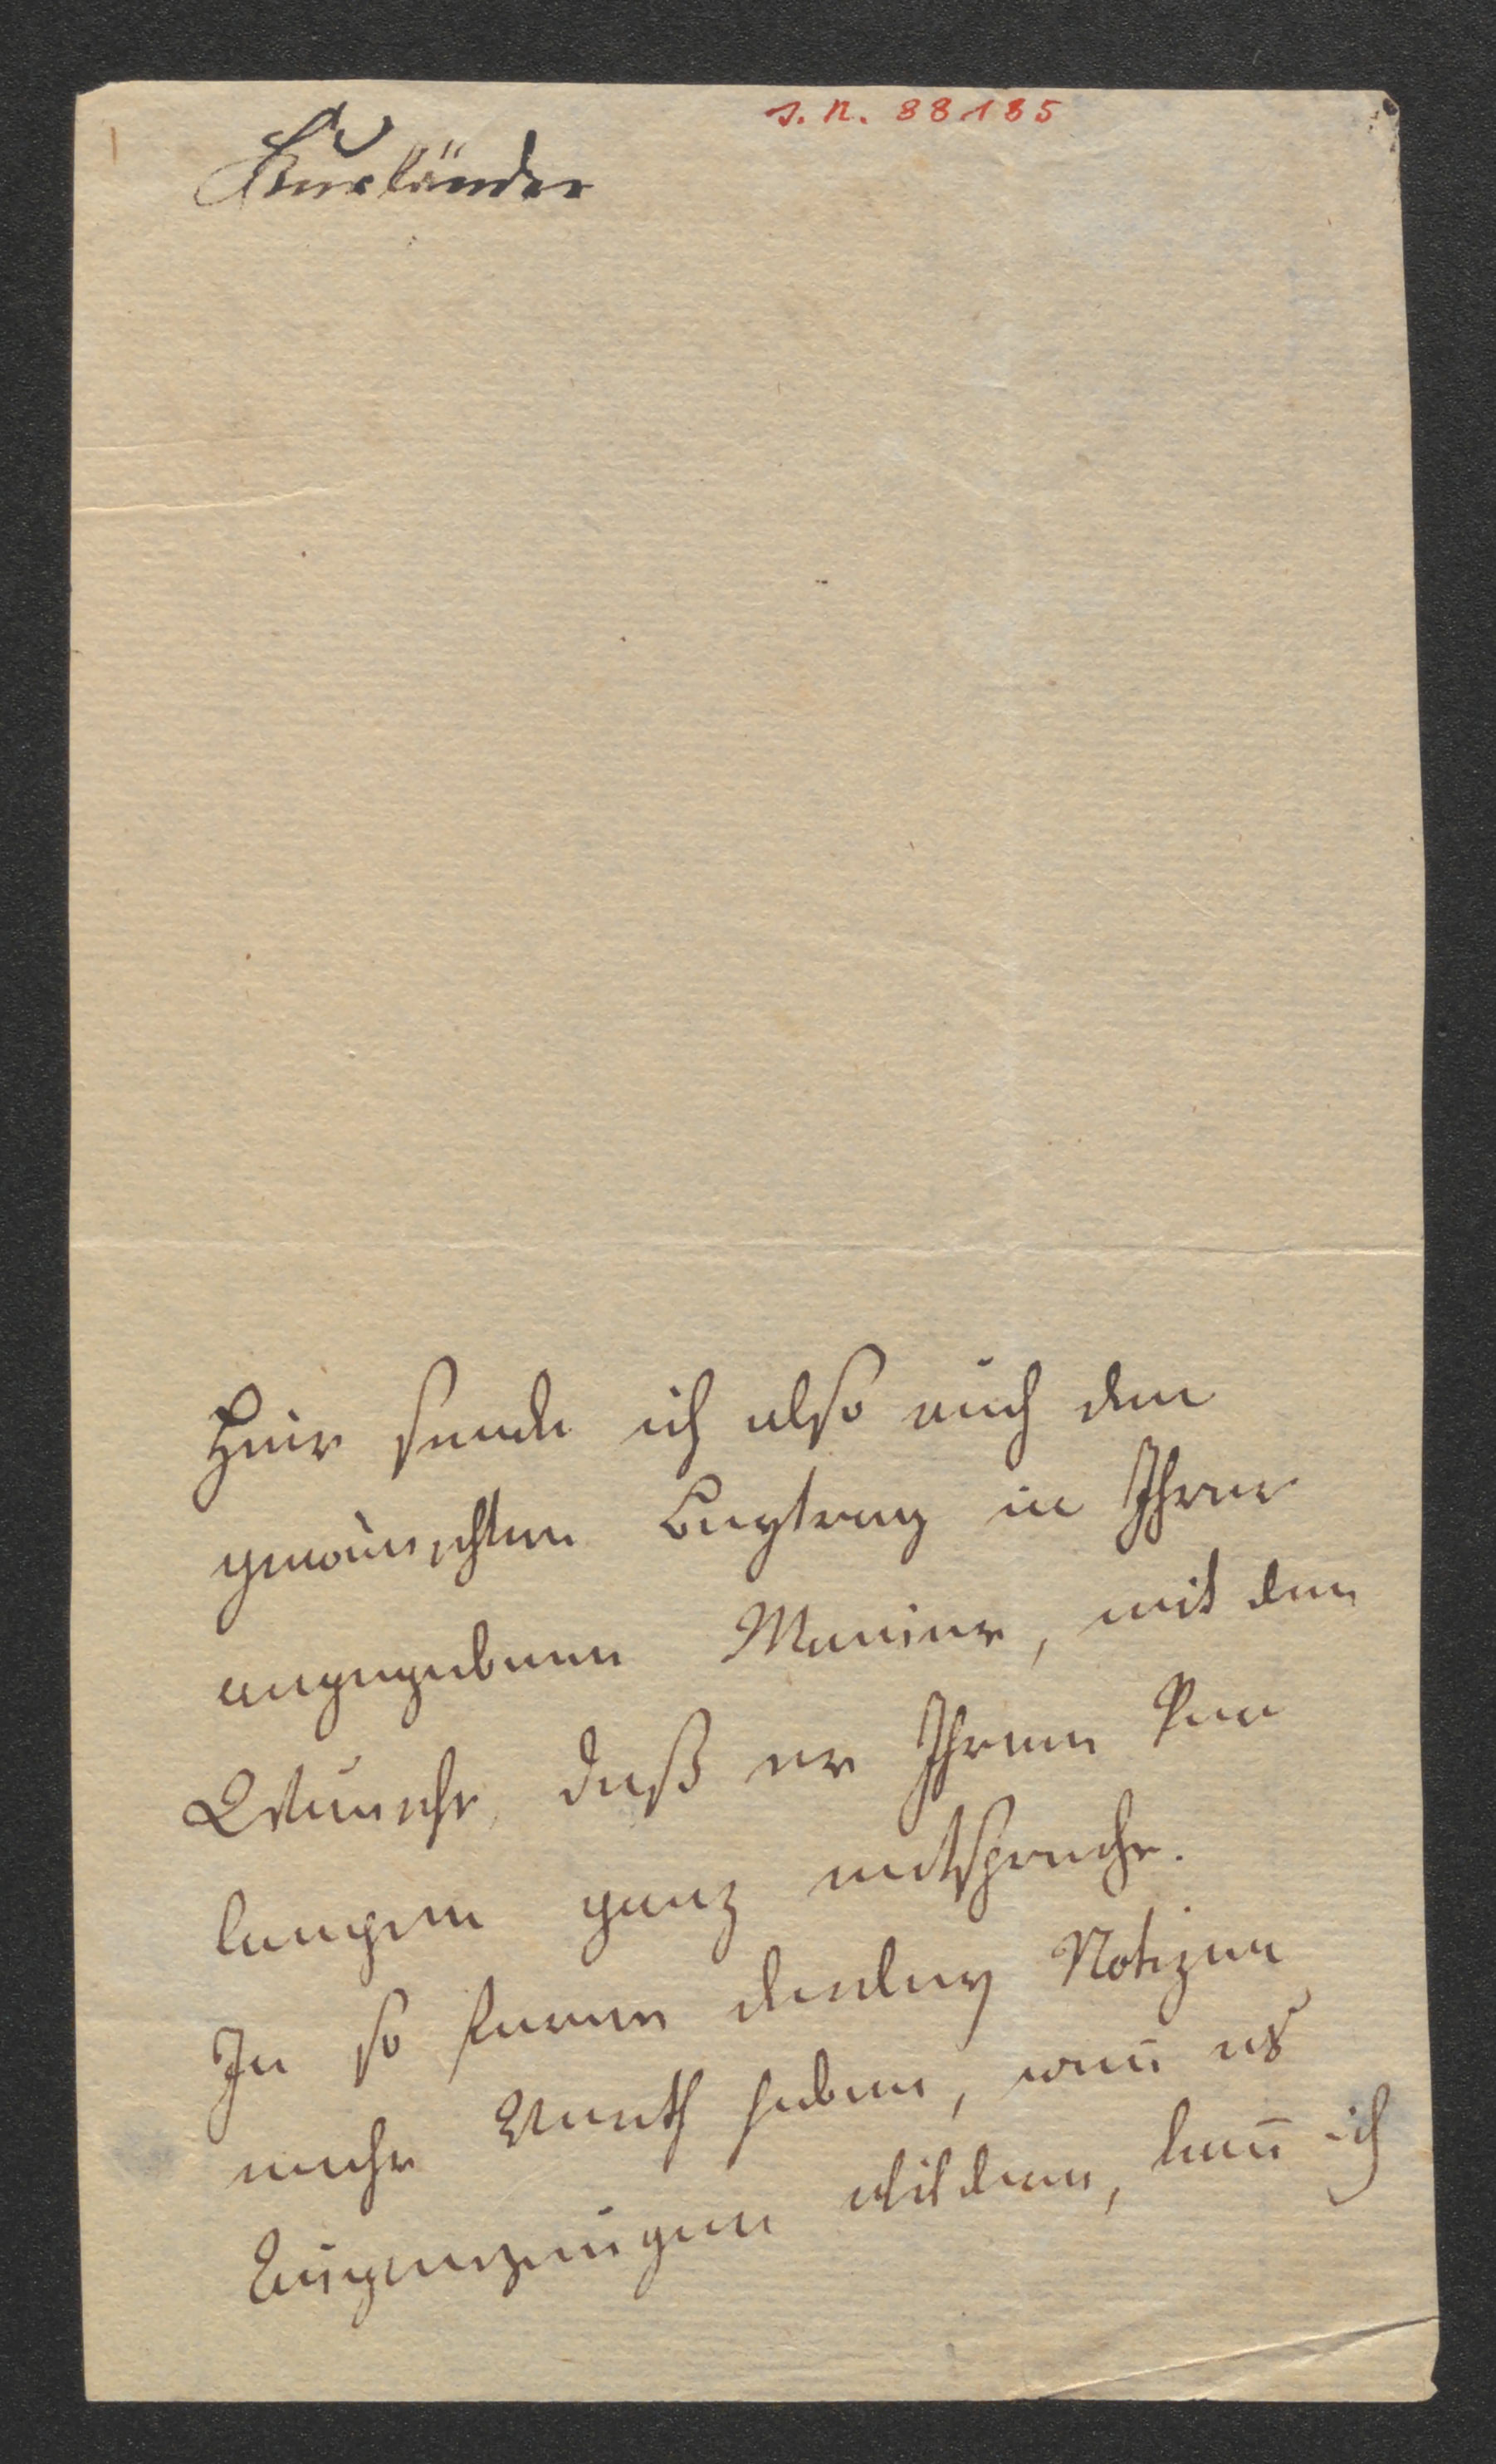 I. N. 88185
Kurländer
Hier sende ich also auch den
gewünschten Beytrag in Ihrer
angegebenen Manier, mit dem
Wunsche, daß er Ihrem Ver
langen ganz entspreche.
In so ferne derley Notizen
mehr Werth haben, weñ es
Augenzeugen schildern, kañ ich